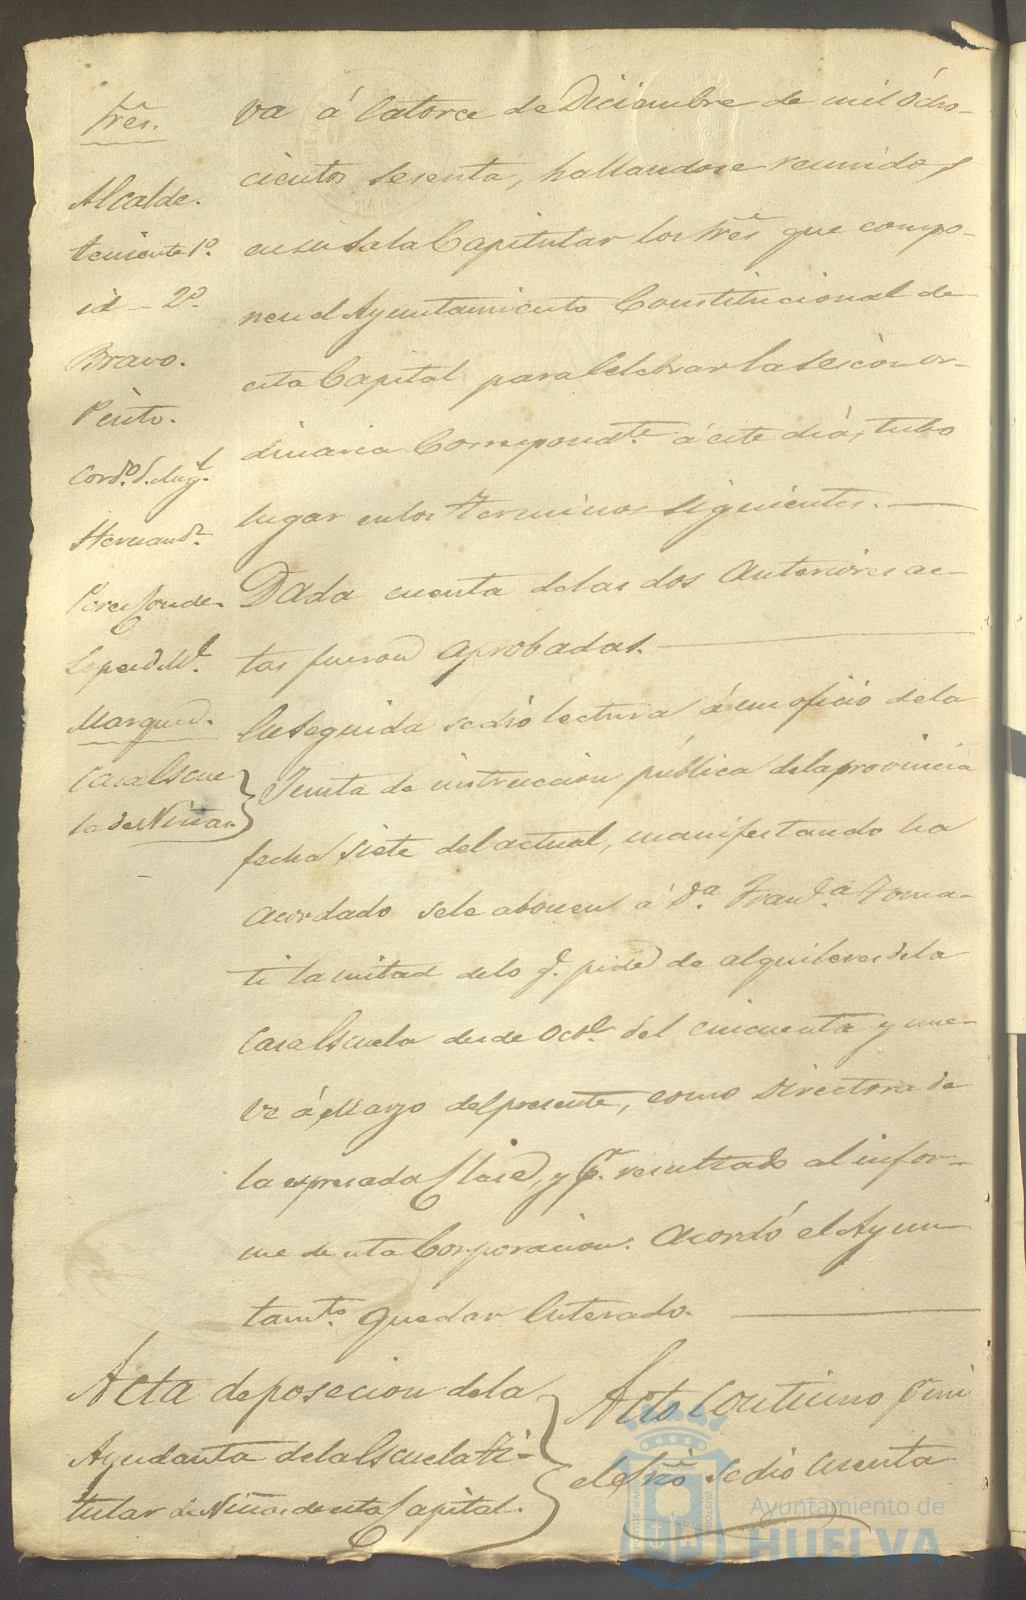 Sres.
Alcalde.
teniente 1º.
id - 2º.
Bravo.
Pinto.
Hernandz.
Marquez.
Casa Escue
la de Niñas.
va á Catorce de Diciembre de mil ócho-
cientos sesenta, hallandose reunidos
en su Sala Capitular los Sres que compo-
nen el Ayuntamiento Constitucional de
esta Capital para Celebrar la Sesion or-
dinaria Correspondte. á este dia, tubo
lugar en los terminos siguientes.
Dada cuenta de las dos Anteriores ac-
tas fueron aprobadas.
En seguida se dió lectura á un oficio de la
Junta de instruccion pública de la provincia
fecha siete del actual, manifestando ha
acordado se le abonen á Da. Franca Toma-
ti la mitad de lo q. pide de alquileres de la
Casa Escuela desde Octe. del cincuenta y nue-
ve á Marzo del presente, como Directora de
la expresada Clase, y pr. resultado al infor-
me de esta Corporacion. Acordó el Ayun
tamto. quedar Enterado.
Acta de posecion de la
Ayudanta de la Escuela ti-
tular de Niñas de esta Capital.
Acto Continuo
el Srio se dio cuenta
Ayuntamiento de
HUELVA